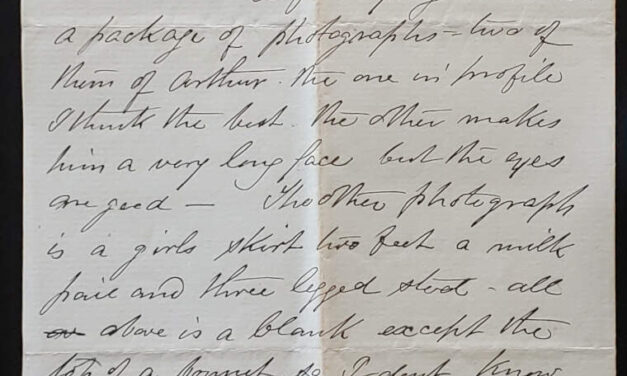 a package of photographs – two of
them of Arthur. the one in profile
I think the best. the other makes
him a very long face but the eyes
are good — The other photograph
is a girls skirt two feet a milk
pail and three legged stool – all
above is a blank except the
top of a bonnet so I dont know